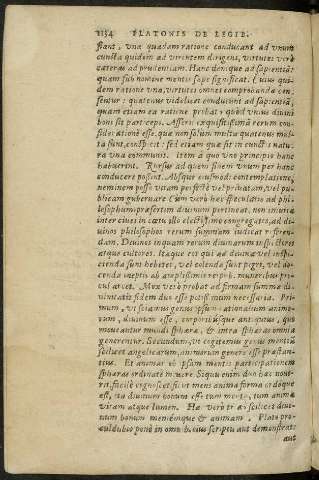 1134 PLATONIS DE LEGIB.
fiant, vna quadam ratione conducant ad vnum
cuncta quidem ad virtutem dirigens, virtutes verò
cæteras ad prudentiam. Hanc demque ad sapientiã
quam sub nomine mentis sæpe significat: huius qui-
dem ratione vna, virtutes omnes comprobanda cen-
setur: quatenus videlicet conducunt ad sapientiã,
quam etiam ea ratione probat, quòd vnius diuini
boni sit particeps. Asserit exquisitissimã rerum con-
siderationẽ esse, quæ non solùm multa quatenus mul-
ta sunt, conspicit: sed etiam quæ sit in cunctis natu-
ra vna communis. Item à quo vno principio hanc
habuerint. Rursus ad quem finem vnum per hanc
conducere possint. Absque eiusmodi contemplatione,
neminem posse vitam perfectè vel priuatam, vel pu-
blicam gubernare. Cùm verò hæc speculatio ad phi-
losophum præsertim diuinum pertineat, non iniuria
inter ciues in cœtu illo electissimo congregatos, ad di-
uinos philosophos rerum summam iudicat referen-
dam. Diuinos inquam rerum diuinarum inspectores
atque cultores. Itaque eos qui ad diuina vel inspi-
cienda sunt hebetes, vel colenda sunt pigri, vel do-
cenda inepti ab amplissimis reipub. muneribus pro-
cul arcet. Mox verò probat ad firmam summæ di-
uinitatis fidem duo esse potissimum necessaria. Pri-
mum, vt sciamus genus ipsum rationalium animo-
rum, diuinum esse, corporibusque antiquius, quo
moueantur mundi sphæræ, & intra sphæras omnia
generentur. Secundum, vt cogitemus genus mentiũ
scilicet angelicarum, animarum genere esse præstan-
tius. Et animas ob ipsam mentis participationem
sphæras ordinatè mouere. Siquis enim duo hæc noue-
rit, facilè cognoscet sicut mens animæ forma & deque
est, ita diuinum bonum esse tum mentis, tum animæ
vitam atque lumen. Hæ verò tria scilicet diui-
num bonum mentemque & animam, Plato pro-
cul dubio penè in omnibus suis scriptis aut demonstrat
aut